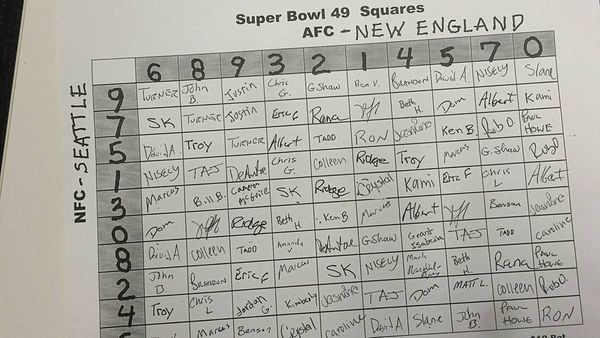 Super Bowl 49 Squares
AFC - NEW ENGLAND
NFC - SEATTLE
6 8 9 3 2 1 4 5 7 0
9 TURNER John B. Justin Chris G. G Shaw Ben V. BRANDON David A. NISELY Slane
7 SK TURNER Justin ERIC F Rana Beth H. Dom Albert Kami
5 David A. Troy TURNER Albert TADD RON Jasmine Ken B. Rob O. PAUL HOWE
1 NISELY TAJ DeAntae Chris G. Colleen Ridge Troy Marcus G. Shaw Rob O.
3 Marcus Bill B. Cameron McGuire SK Ridge Crystal Kami ERIC F Chris L Albert
0 Dom Ridge Beth H Ken B Marcus Albert Benson Jasmine
8 David A Colleen TADD Amanda DeAntae G-Shaw Isabella TAJ TADD caroline
2 John B. BRANDON Eric F Marcus SK NISELY Beth H. Rana PAUL HOWE
4 Troy Chris L Jordan G. Kimberly Jasmine TAJ Dom MATT L. Colleen Rob O.
Marcus Benson Crystal caroline David A Slane John B. PAUL HOWE RON